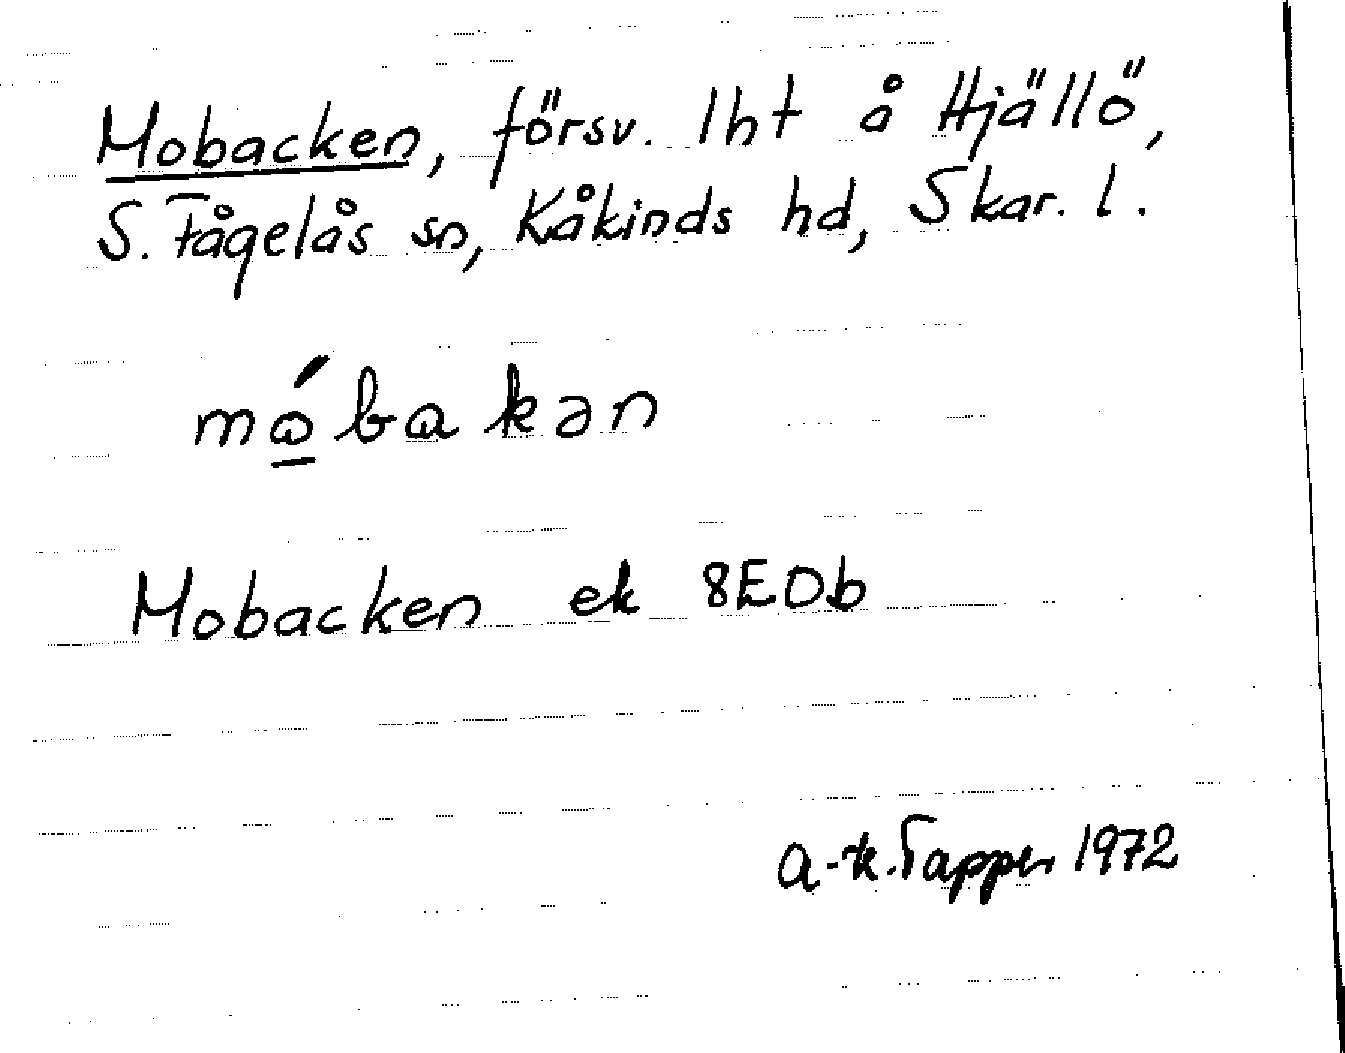 Mobacken, försv. lht å Hjällö,
S. Fågelås sn, Kåkinds hd, Skar. l.
mώbakən
Mobacken ek 8E0b
A-K. Tapper 1972